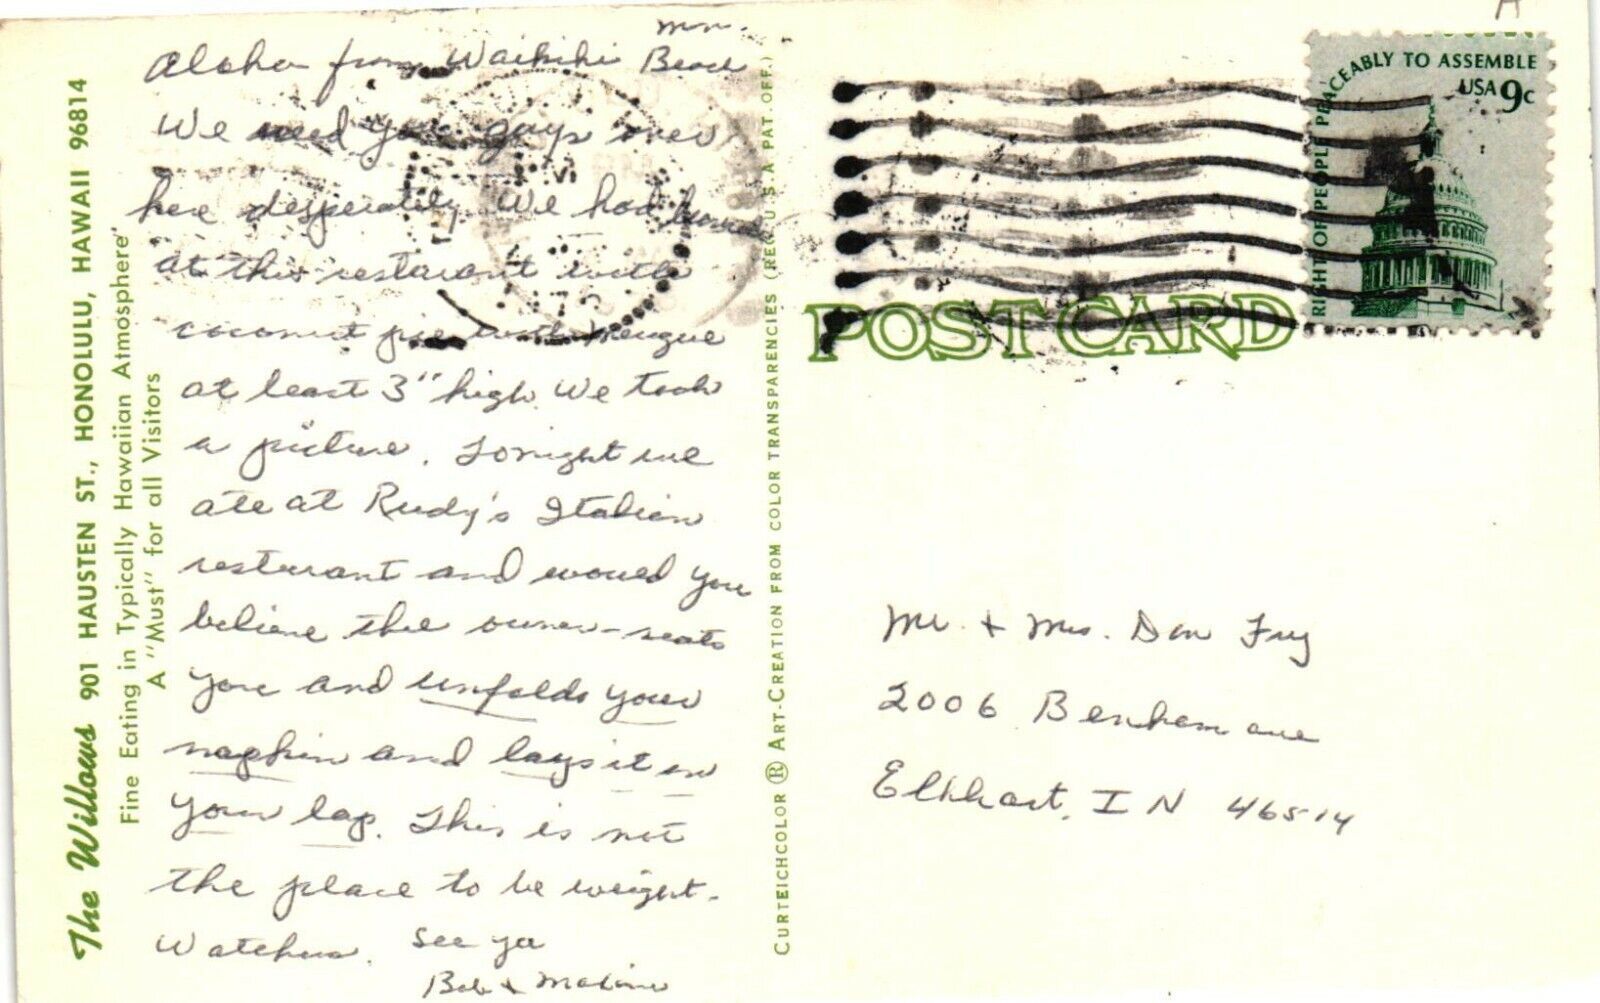 mon.
Aloha from Waikiki Beach
We need you guys over
here desperately. We had
at this restaurant with
coconut pie with mengue
at least 3" high. We took
a picture. Tonight we
ate at Rudy's Italian
resturant and would you
believe the owner-seats
you and unfolds your
napkin and lays it on
your lap. This is not
the place to be weight-
Watchers. See ya
Bob & Maxine
The Willows 901 HAUSTEN ST., HONOLULU, HAWAII 96814
Fine Eating in Typically Hawaiian Atmosphere"
A "Must" for all Visitors
CURTEICHCOLOR ® ART-CREATION FROM COLOR TRANSPARENCIES (REG. U.S.A. PAT. OFF.)
POST CARD
RIGHT OF PEOPLE PEACEABLY TO ASSEMBLE
USA 9c
Mr. + Mrs. Don Fry
2006 Benham ave
Elkhart, IN 46514